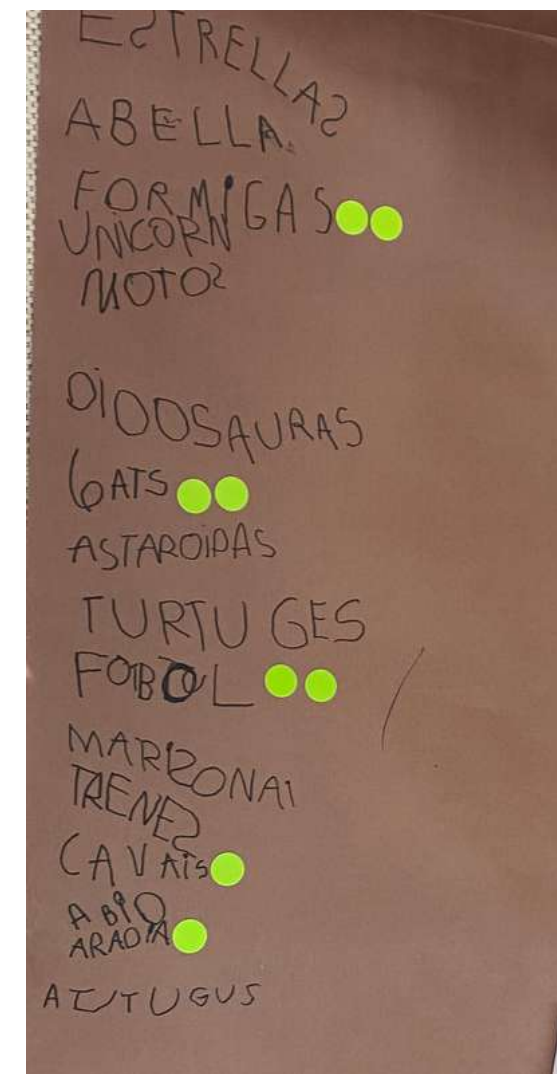 ESTRELLAS
ABELLA.
FORMIGAS
UNICORN
MOTOS
DIDOSAURAS
GATS
ASTAROIDAS
TURTUGES
FOBOL
TRENES
CAVAIS
ABIO
ARADIA